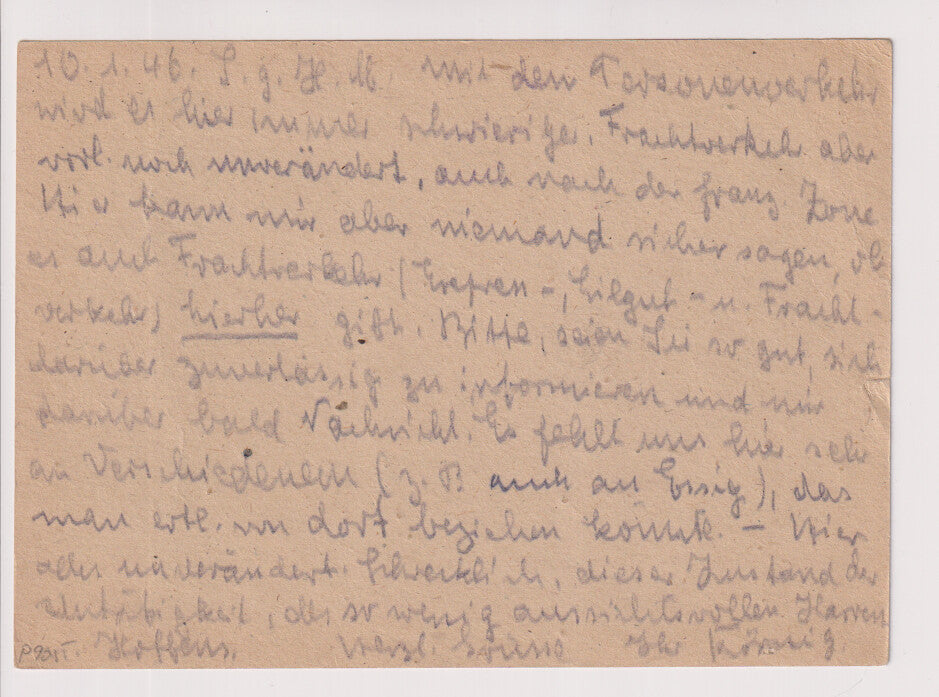 10.1.46. S. g. H. M. Mit dem Personenverkehr
wird es hier immer schwieriger, Frachtverkehr aber
vorl. noch unverändert, auch nach der franz. Zone
Hier kann mir aber niemand sicher sagen, ob
es auch Frachtverkehr (Expreß-, Eilgut- u. Fracht-
verkehr) hierher gibt. Bitte, seien Sie so gut, sich
darüber zuverlässig zu informieren und mir
darüber bald Nachricht. Es fehlt uns hier sehr
an Verschiedenem (z. B auch an Essig), das
man evtl. von dort beziehen könnte. – Hier
alles unverändert. Schrecklich, dieser Zustand der
Untätigkeit, des so wenig aussichtsvollen Harrens
u. Hoffens. Herzl. Grüsse Ihr